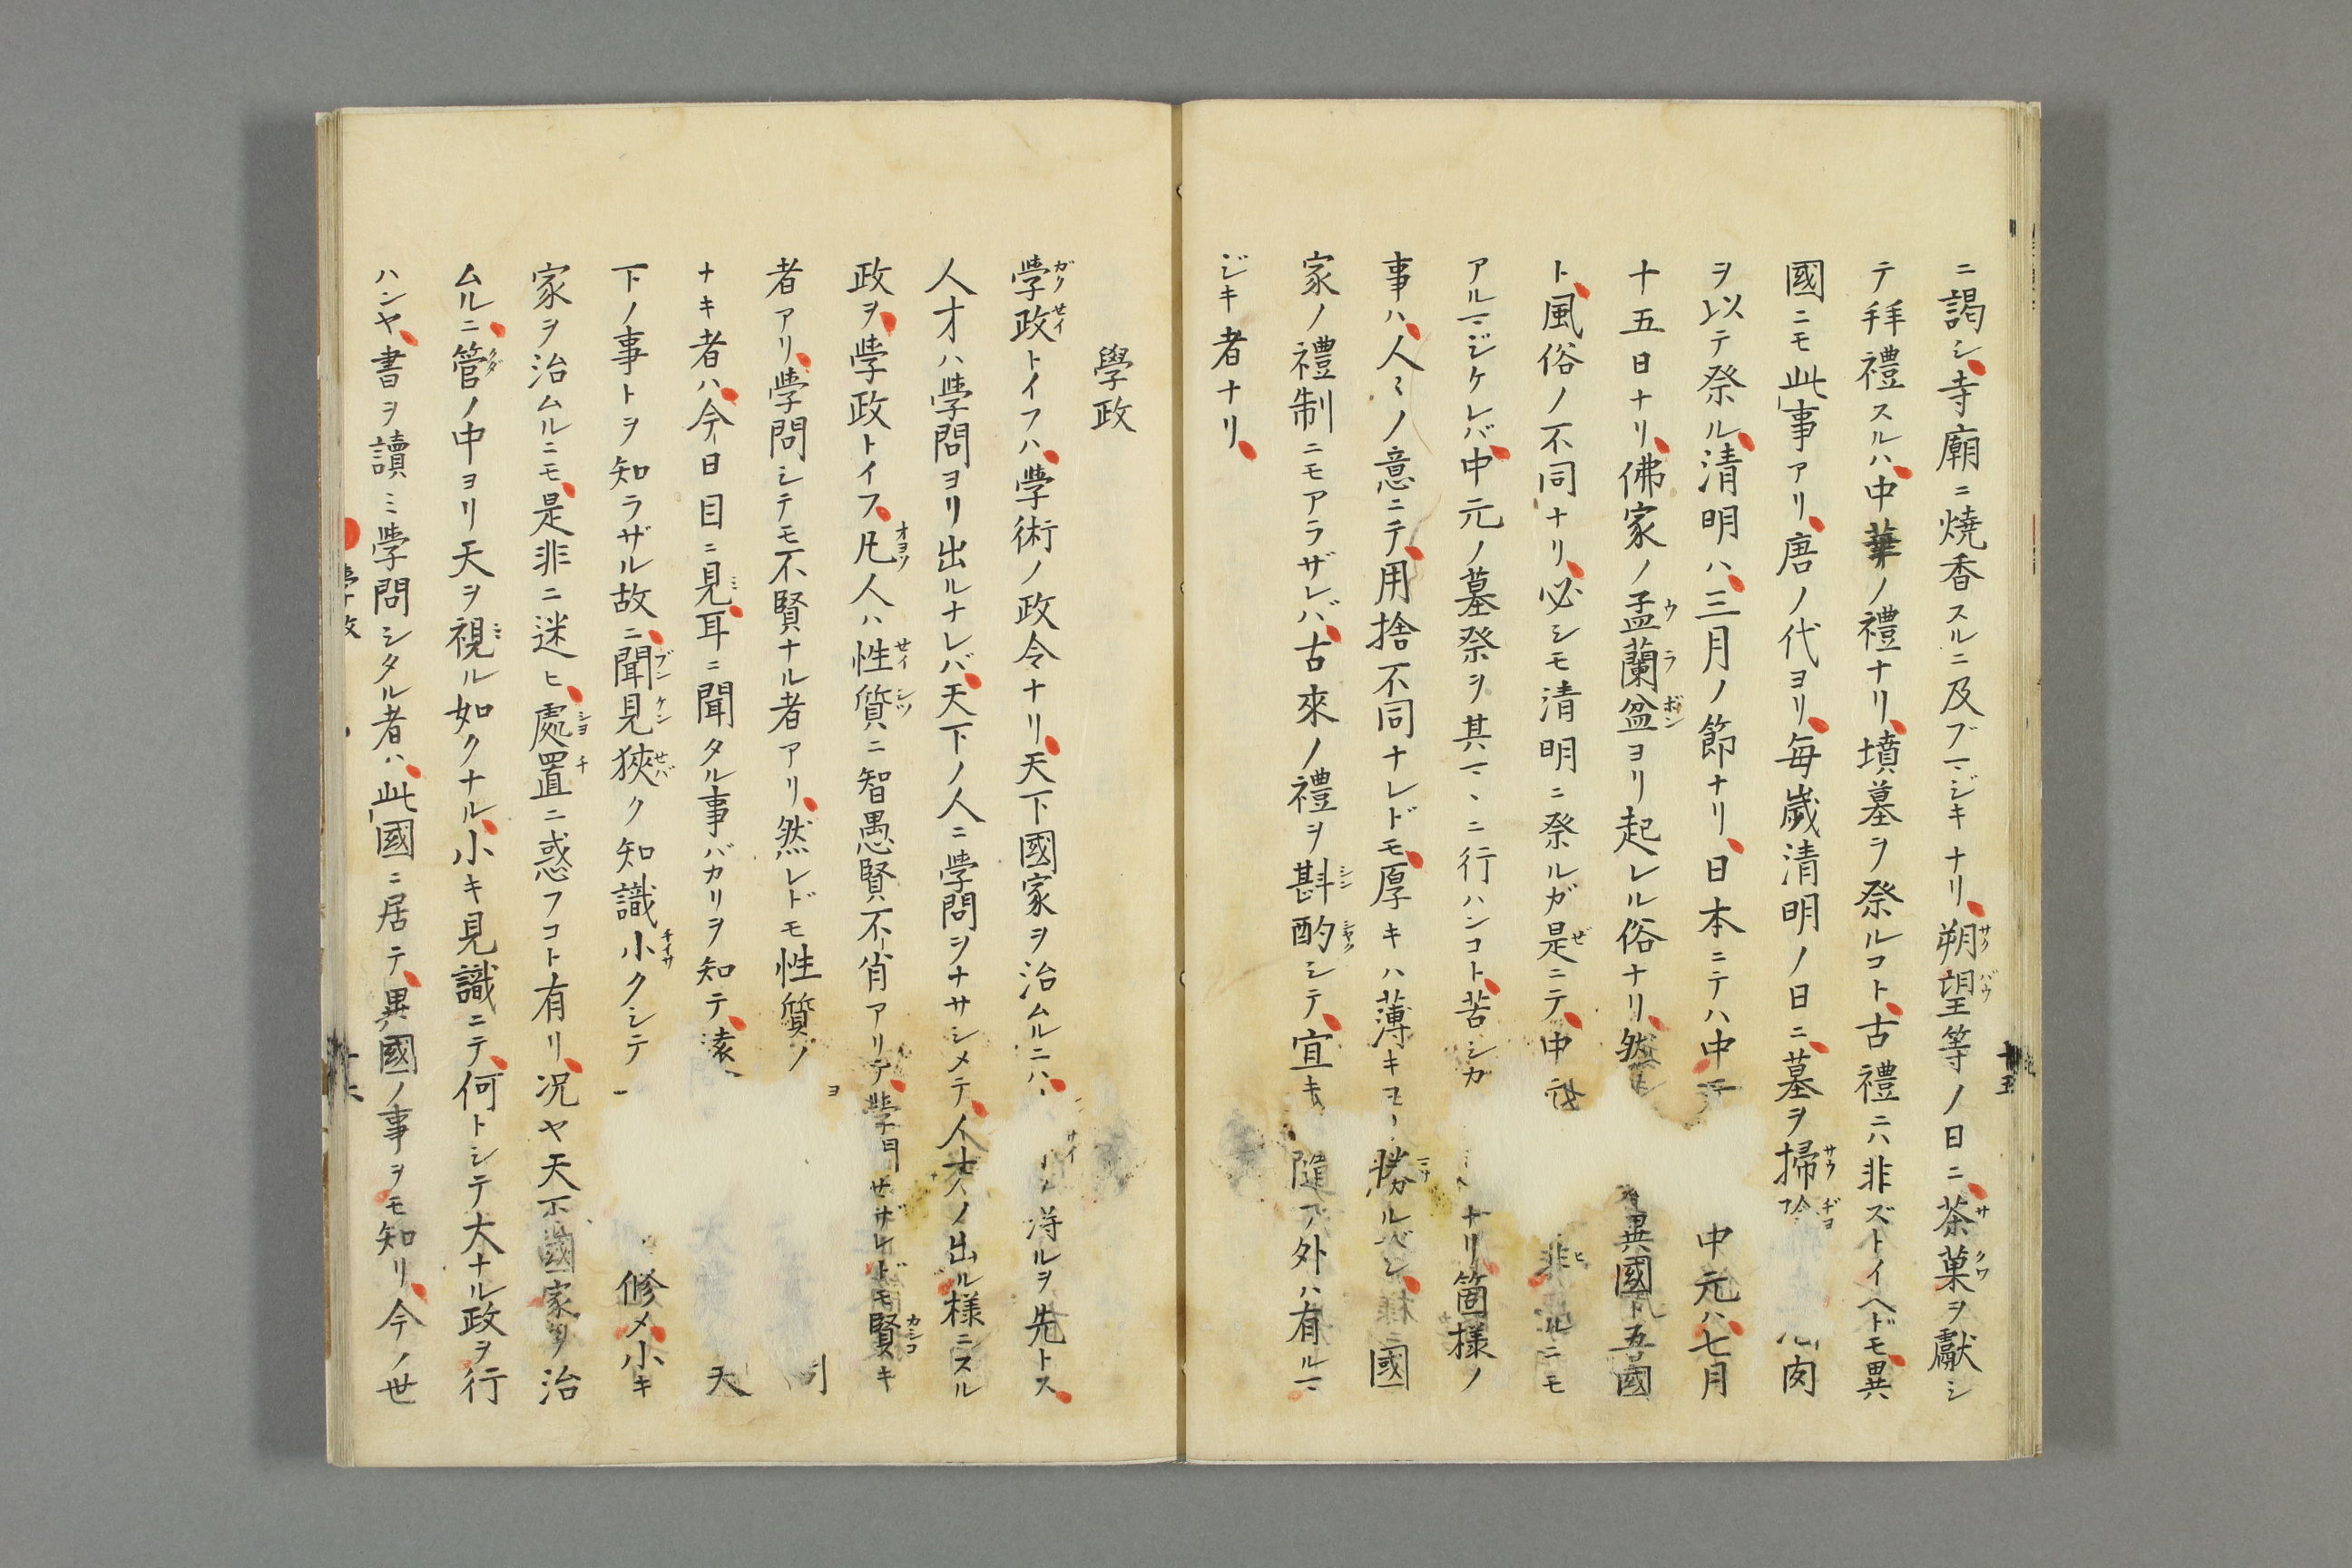 ニ謁シ寺廟ニ焼香スルニ及ブマジキナリ朔望等ノ日ニ茶菓ヲ獻シ
テ拜禮スルハ中華ノ禮ナリ墳墓ヲ祭ルコト古禮ニハ非ズトイヘドモ異
國ニモ此事アリ唐ノ代ヨリ毎歳清明ノ日ニ墓ヲ掃
ヲ以テ祭ル清明ハ三月ノ節ナリ日本ニテハ中 中元ハ七月
十五日ナリ佛家ノ盂蘭盆ヨリ起レル俗ナリ然 異國ト吾國
ト風俗ノ不同ナリ必シモ清明ニ祭ルガ是ニテ中 非 ルニモ
アルマジケレバ中元ノ墓祭ヲ其マヽニ行ハンコト苦シカ ナリ箇様ノ
事ハ人〻ノ意ニテ用捨不同ナレドモ厚キハ薄キヨ 勝ルベシ 國
家ノ禮制ニモアラザレバ古來ノ禮ヲ斟酌シテ宜キ 隨フ外ハ有ルマ
ジキ者ナリ
學政
學政トイフハ學術ノ政令ナリ天下國家ヲ治ムルニハ 得ルヲ先トス
人才ハ學問ヨリ出ルナレバ天下ノ人ニ學問ヲナサシメテ人才ノ出ル様ニスル
政ヲ學政トイフ凡人ハ性質ニ智愚賢不肖アリテ學問セザレドモ賢キ
者アリ學問シテモ不賢ナル者アリ然レドモ性質ノ
ナキ者ハ今日目ニ見耳ニ聞タル事バカリヲ知テ遠 天
下ノ事トヲ知ラザル故ニ聞見狹ク知識小クシテ 修メ小キ
家ヲ治ムルニモ是非ニ迷ヒ處置ニ惑フコト有リ况ヤ天下國家ヲ治
ムルニ管ノ中ヨリ天ヲ視ル如クナル小キ見識ニテ何トシテ大ナル政ヲ行
ハンヤ書ヲ讀ミ學問シタル者ハ此國ニ居テ異國ノ事ヲモ知リ今ノ世